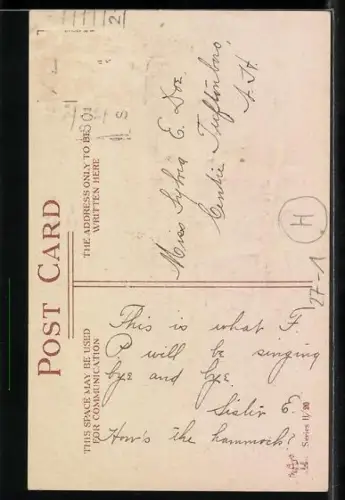 POST CARD
THE ADDRESS ONLY TO BE
WRITTEN HERE
Miss Sylvia E. Doe
Centre Tuftonboro,
N. H.
H
27-1
THIS SPACE MAY BE USED
FOR COMMUNICATION
This is what F.
P will be singing
bye and bye.
Sister E.
How's the hammock?
Series 11/20